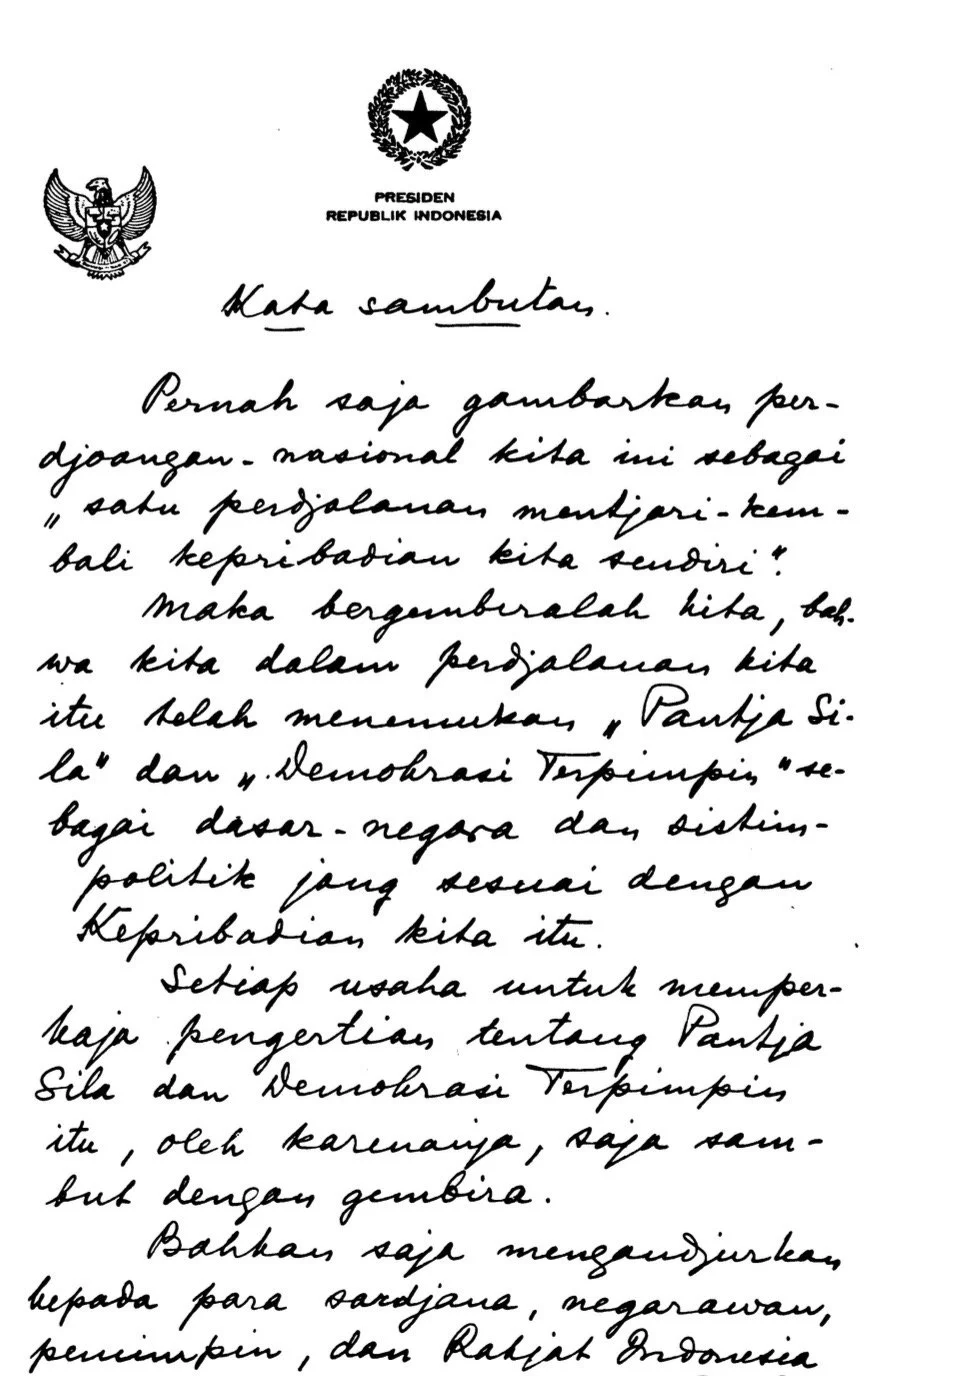 PRESIDEN
REPUBLIK INDONESIA
Kata sambutan.
Pernah saja gambarkan per-
djoangan-nasional kita ini sebagai
„satu perdjalanan mentjari-kem-
bali kepribadian kita sendiri".
Maka bergembiralah kita, bah-
wa kita dalam perdjalanan kita
itu telah menemukan „Pantja Si-
la" dan „Demokrasi Terpimpin" se-
bagai dasar-negara dan sistim-
politik jang sesuai dengan
Kepribadian kita itu.
Setiap usaha untuk memper-
kaja pengertian tentang Pantja
Sila dan Demokrasi Terpimpin
itu, oleh karenanja, saja sam-
but dengan gembira.
Bahkan saja mengandjurkan
kepada para sardjana, negarawan,
pemimpin, dan Rakjat Indonesia